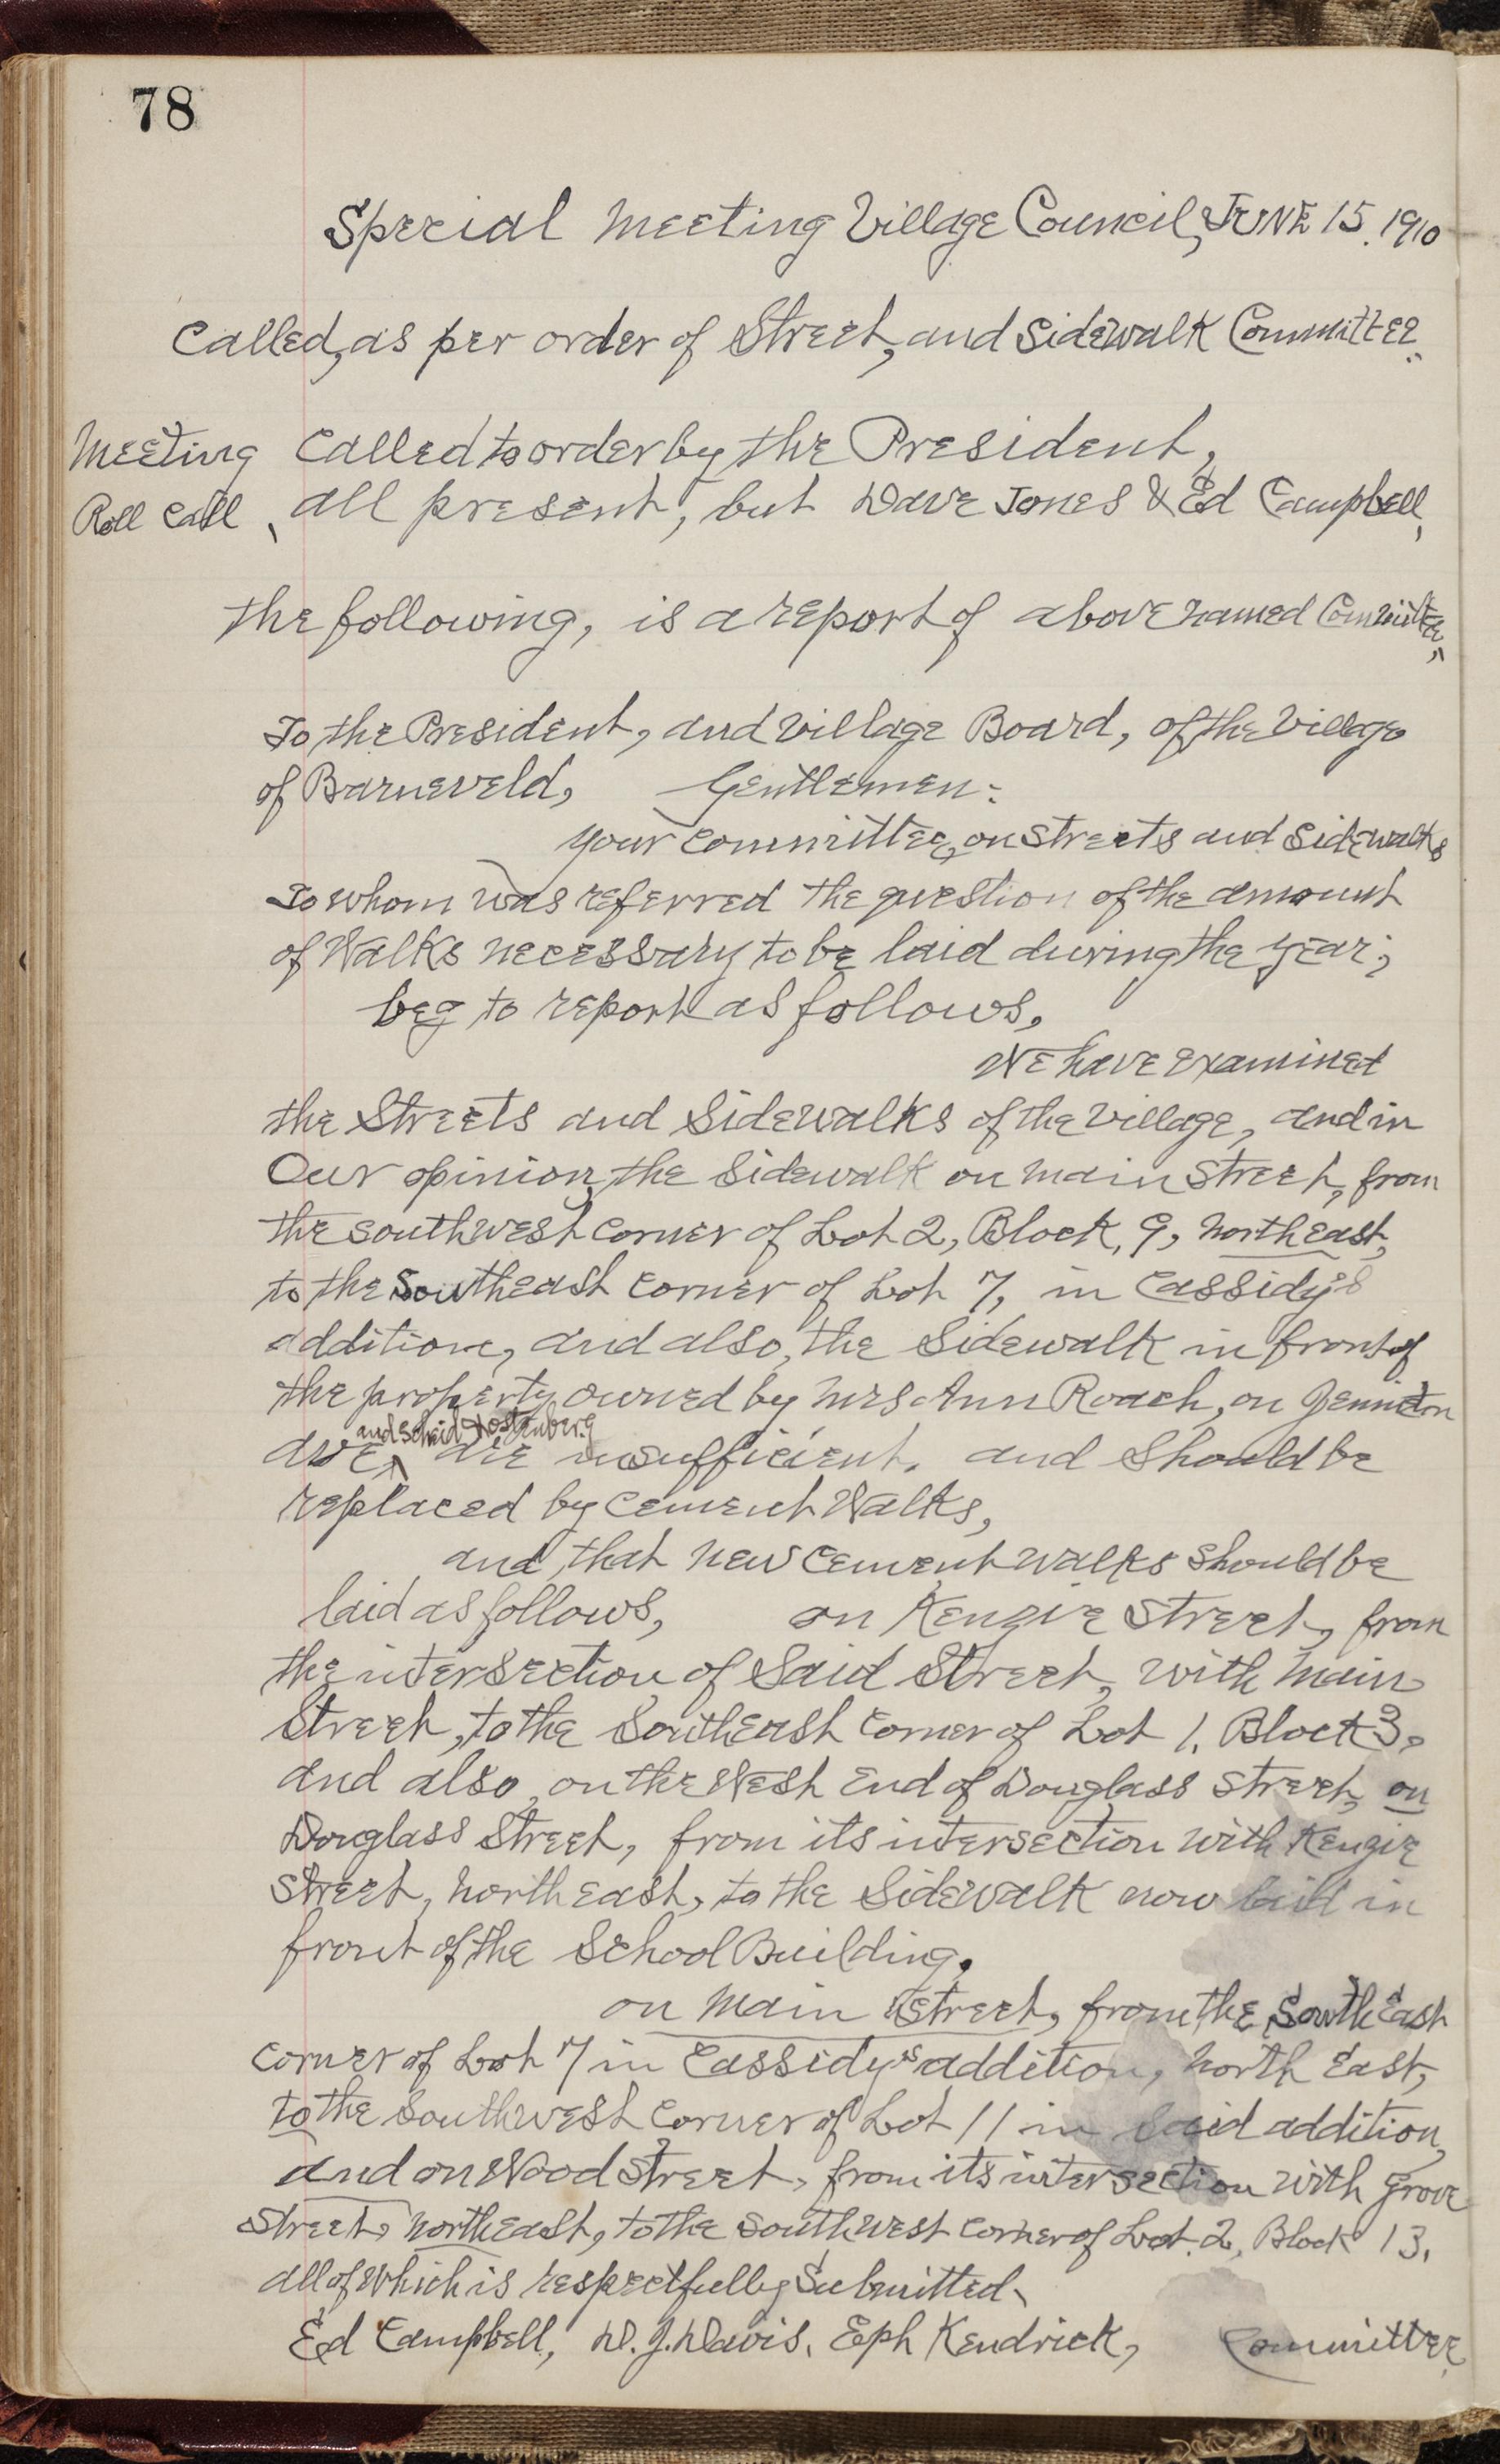 78
Special Meeting Village Council, JUNE 15, 1910
Called, as per order of Street, and Sidewalk Committee.
Meeting Called to order by the President,
Roll Call, all present, but Dave Jones & Ed Campbell,
the following, is a report of above named Committee,
To the President, and Village Board, of the Village
of Barneveld, Gentlemen:
your Committee, on Streets and Sidewalks
To whom was referred the question of the amount
of Walks necessary to be laid during the year;
beg to report as follows,
We have Examined
the Streets and Sidewalks of the Village, and in
Our opinion, the Sidewalk on Main Street, from
the southwest corner of Lot 2, Block, 9, North East,
to the Southeast Corner of Lot 7, in Cassidy's
addition, and also, the Sidewalk in front of
the property owned by Mrs Ann Roach, on
and
Ave, are insufficient, and Should be
replaced by Cement Walks,
and, that New Cement walks should be
laid as follows, on Kenzie Street, from
the intersection of Said Street, with Main
Street, to the Southeast Corner of Lot 1, Block 3,
and also, on the West End of Douglass Street, on
Douglass Street, from its intersection with Kenzie
Street, North East, to the Sidewalk now laid in
front of the School Building.
on Main Street, from the South East
Corner of Lot 7 in Cassidy's addition, North East,
to the Southwest Corner of Lot 11 in Said addition,
and on Wood Street, from its intersection with Grove
Street, North East, to the Southwest corner of Lot 2, Block 13.
all of which is respectfully Submitted,
Ed Campbell, D. J. Davis, Eph Kendrick, Committee